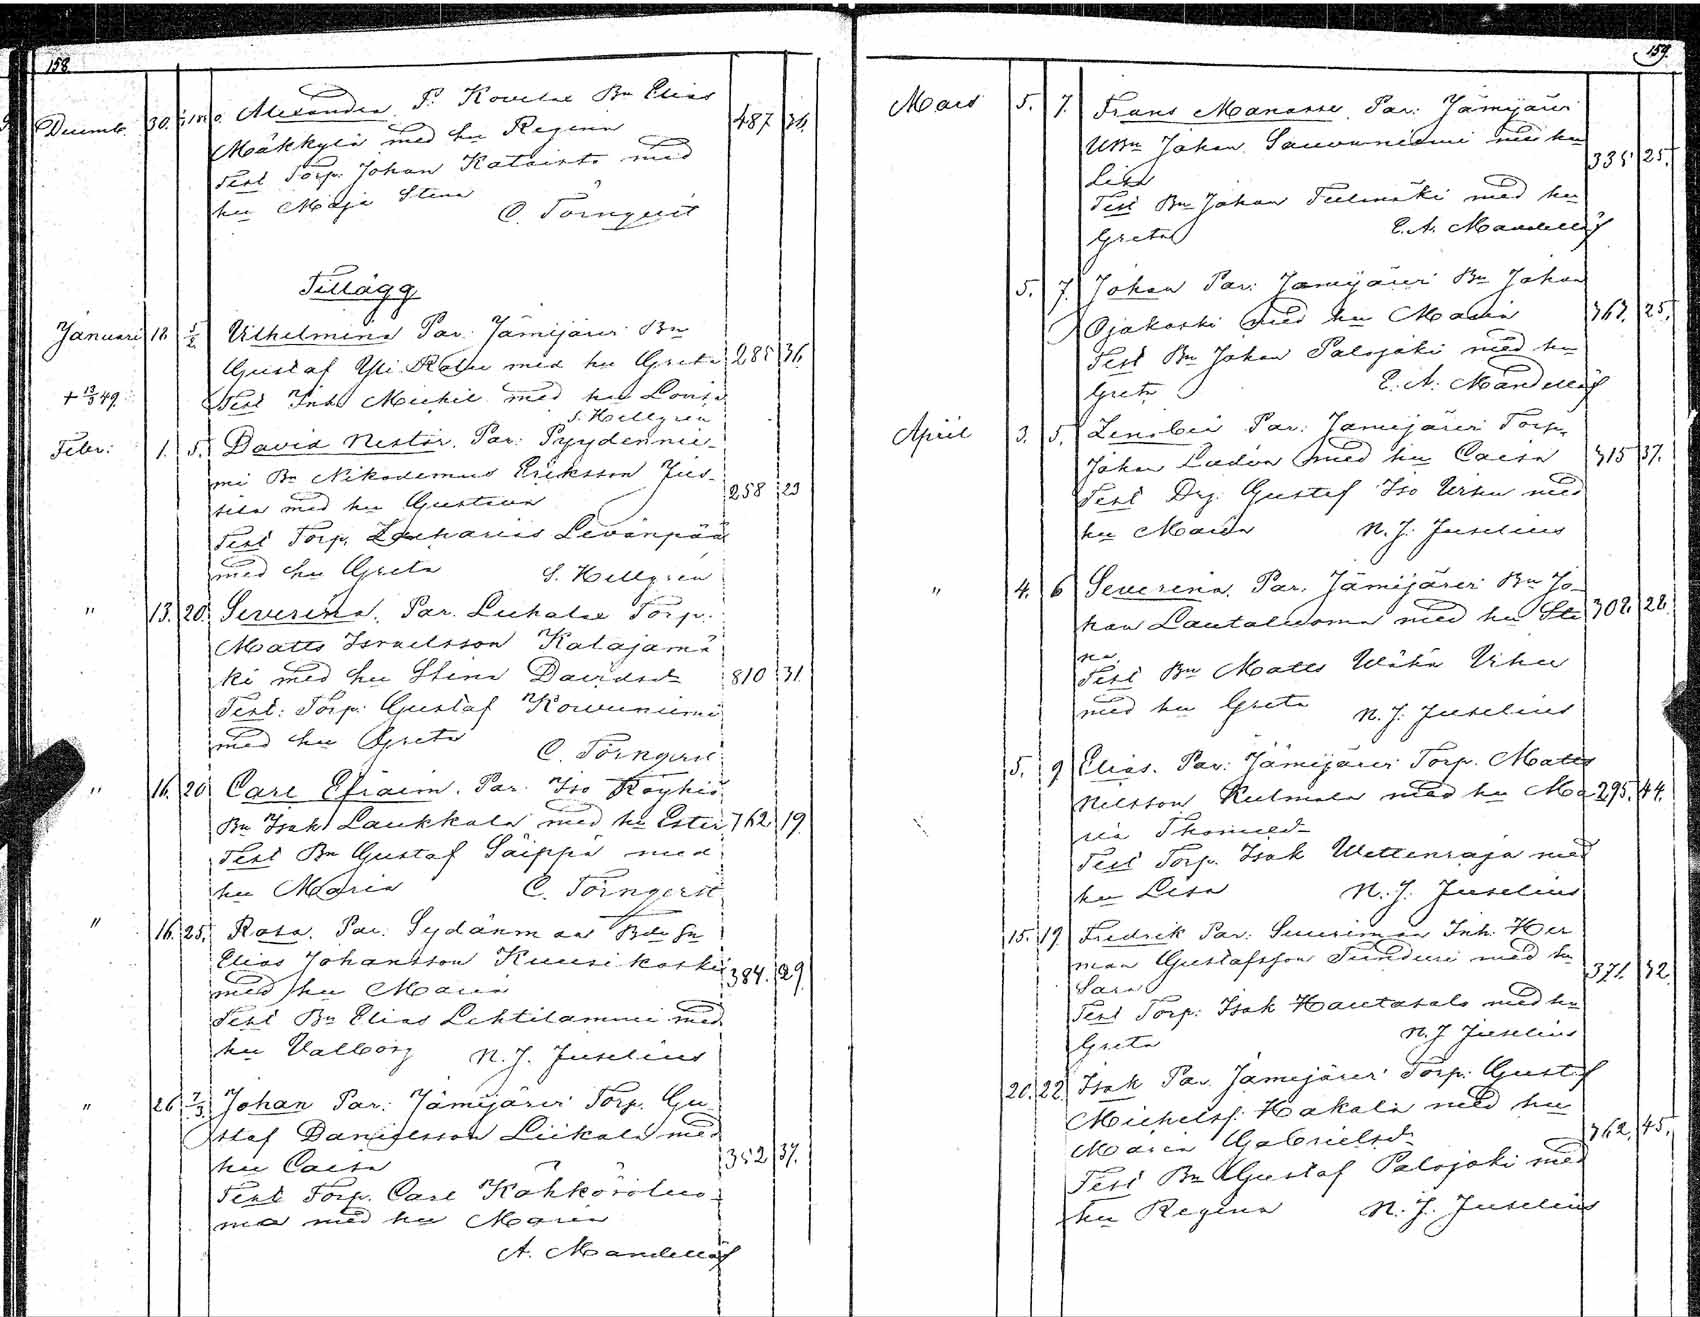 158
Decemb. 30. Alexandra P. Kovelax Bn Elias 487 36.
Mäkkylä med hu Regina
Test Torp. Johan Kataisto med
hu Maja Stina
C. Törnqvist
Tillägg
Januari 18 5/2 Vilhelmina Par. Jämijärvi Bn
Gustaf Yli Rahu med hu Greta 285 36.
+ 13/3 49. Test Inh. Michel med hu Lovisa
S. Hellgren
Febr: 1. 5. David Nestor. Par: Pyydennie-
mi Bn Nikodemus Eriksson Jus-
sila med hu Gustava 258 23
Test Torp. Zacharias Levänpää
med hu Greta S. Hellgren
" 13. 20. Severina. Par. Luhalax Torp.
Matts Israelsson Katajamä
ki med hu Stina Davidsdr 810 31.
Test: Torp: Gustaf Kouvuniemi
med hu Greta
C. Törnqvist
" 16. 20 Carl Efraim. Par. Iso Röyhiö
Bn Isak Laukkala med hu Ester 762 19.
Test Bn Gustaf Säippä med
hu Maria C. Törnqvist
" 16. 25. Rosa. Par. Sydänmaa
Elias Johansson Kuusikoski 384. 29.
med hu Maria
Test Bn Elias Lehtilammi med
hu Valborg N. J. Juselius
" 26 7/3 Johan Par: Jämijärvi Torp. Gu
staf Danielsson Liikala med
hu Caisa 352 37.
Test Torp. Carl Kähköröluo-
ma med hu Maria
A. Mandellöf
159.
Mars 5. 7. Frans Manasse Par: Jämijärvi
UBn Johan Sauvuniemi med hu 335 25.
Lisa
Test Bn Johan Tulimäki med hu
Greta E. A. Mandellöf
5. 7. Johan Par: Jämijärvi Bn Johan
Ojakoski med hu Maria 363. 25.
Test Bn Johan Palojäki med hu
Greta E. A. Mandellöf
April 3. 5. Zenobia Par: Jämijärvi Torp.
Johan Ludén med hu Caisa 315 37.
Test Drg. Gustaf Iso Uhu med
hu Maria N. J. Juselius
" 4. 6 Severina. Par: Jämijärvi Bn Jo-
han Lautaluoma med hu Sti 308. 28.
na
Test Bn Matts Wähä Uhu
med hu Greta N. J. Juselius
5. 9 Elias. Par: Jämijärvi Torp. Matts
Nilsson Kulmala med hu Ma 295. 44.
ria Thomasdr
Test Torp. Isak Wettenraja med
hu Lisa N. J. Juselius
15. 19 Fredrik Par: Suurimaa Inh: Her
man Gustafsson Tunduri med hu
Sara 371. 32.
Test Torp: Isak Hautasalo med hu
Greta N. J Juselius
20. 22. Isak Par. Jämijärvi Torp: Gustaf
Michelsf. Hakala med hu
Maria Gabrielsdr 362. 45.
Test Bn Gustaf Palojäki med
hu Regina N. J. Juselius